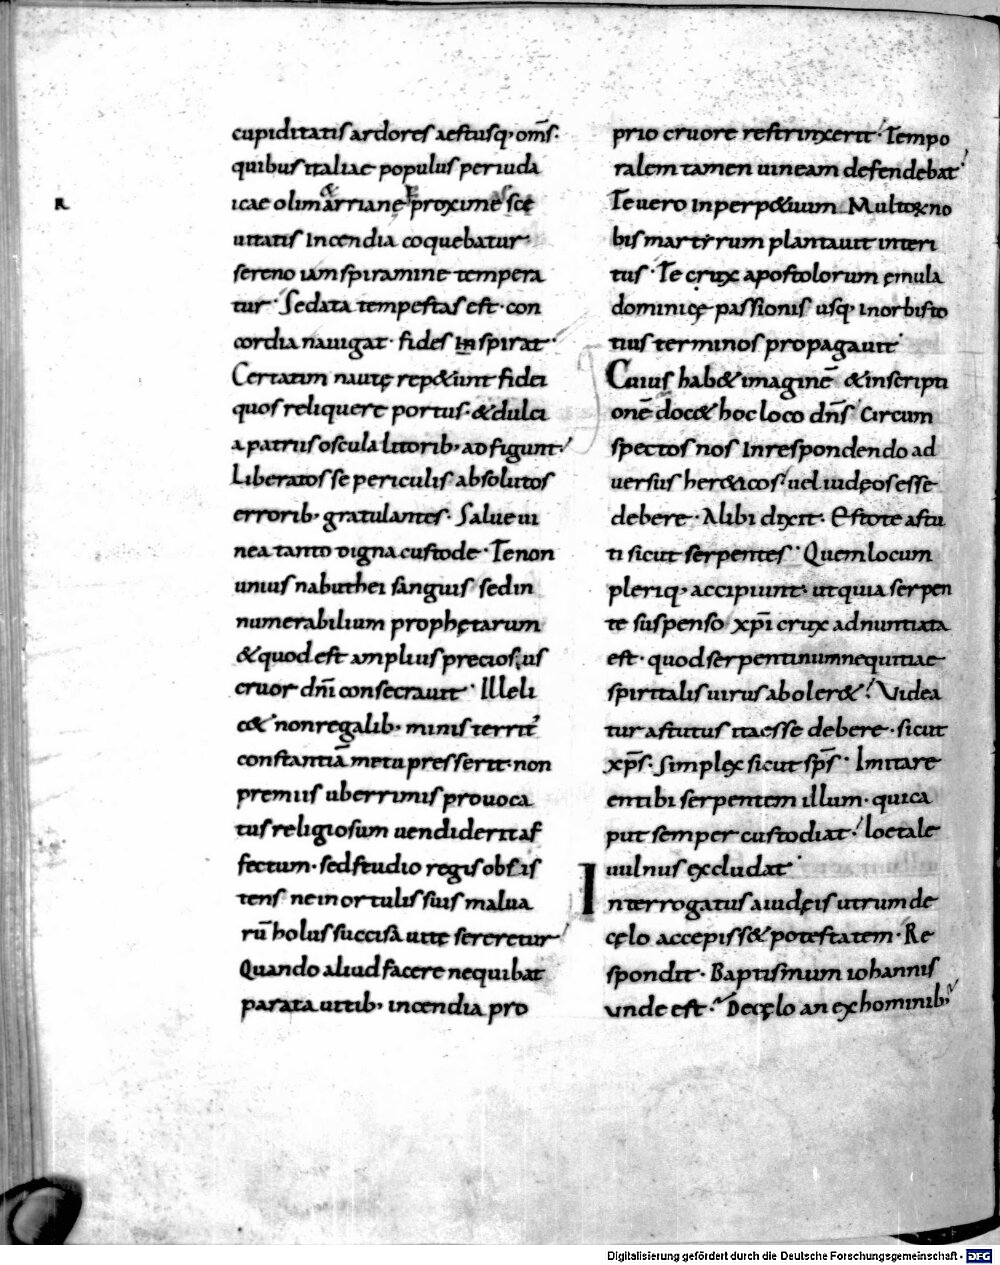 cupiditatis ardores aestusq; oms̄.
quibus italiae populus periuda
R
icae olim & arrianę proxime scę
uitatis incendia coquebatur.
sereno iam spiramine tempera
tur. Sedata tempestas est. con
cordia nauigat. fides inspirat.
Certatim nautę rep&unt fidei
quos reliquere portus. & dulci
a patriis oscula litorib; adfigunt.
Liberatos se periculis absolutos
errorib; gratulantes. Salue ui
nea tanto digna custode. Te non
unius nabuthei sanguis sed in
numerabilium prophętarum
& quod est amplius preciosius
cruor dn̄i consecrauit. Ille li
c& non regalib; minis territ'
constantiā metu presserit. non
premiis uberrimis prouoca
tus religiosum uendiderit af
fectum. sed studio regis obsis
tens ne in ortulis suis malua
rū holus succisa uite sereretur
Quando aliud facere nequibat
parata uitib; incendia pro
prio cruore restrinxerit. Tempo
ralem tamen uineam defendebat
Te uero in perp&uum Multoꝝ no
bis martyrum plantauit interi
tus. Te crux apostolorum ęmula
dominicę passionis usq; in orbis to
tius terminos propagauit.
Cuius hab& imaginē & inscripti
onē doc& hoc loco dn̄s circum
spectos nos in respondendo ad
uersus her&icos. uel iudęos esse
debere. Alibi dixit. Estote astu
ti sicut serpentes. Quem locum
pleriq; accipiunt. ut quia serpen
te suspenso xp̄i crux adnuntiata
est. quod serpentinum nequitiae
spiritalis uirus aboler&. Videa
tur astutus ita esse debere. sicut
xp̄s. simplex sicut sp̄s. Imitare
en tibi serpentem illum. qui ca
put semper custodiat. loetale
uulnus excludat.
Interrogatus a iudęis utrum de
cęlo accepiss& potestatem. Re
spondit. Baptismum iohannis
unde est. De cęlo an ex hominib;
Digitalisierung gefördert durch die Deutsche Forschungsgemeinschaft - DFG